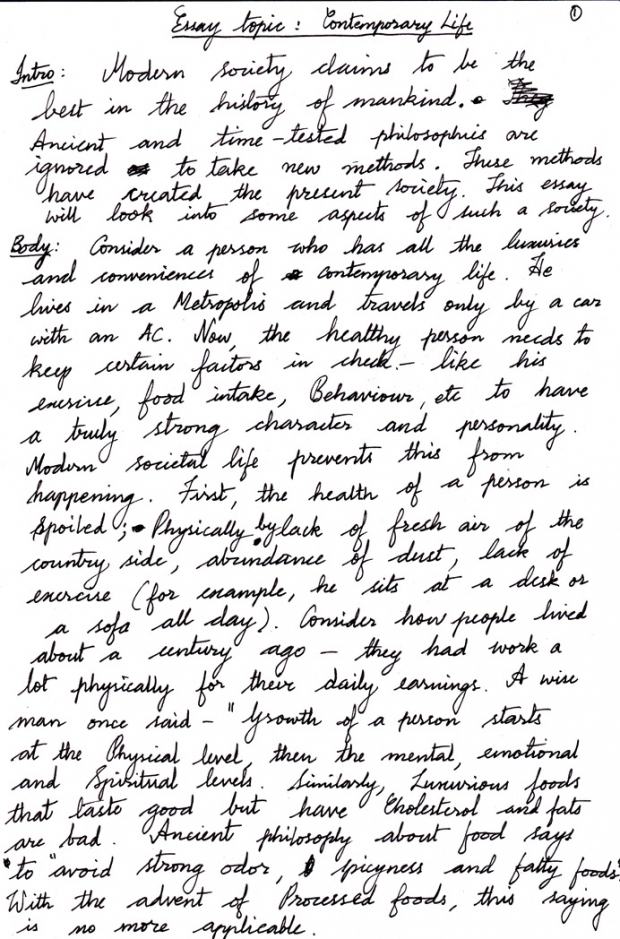 Essay topic : Contemporary Life
①
Intro: Modern society claims to be the
best in the history of mankind.
Ancient and time-tested philosophies are
ignored to take new methods. These methods
have created the present society. This essay
will look into some aspects of such a society.
Body: Consider a person who has all the luxuries
and conveniences of contemporary life. He
lives in a Metropolis and travels only by a car
with an AC. Now, the healthy person needs to
keep certain factors in check - like his
exercise, food intake, Behaviour, etc to have
a truly strong character and personality.
Modern societal life prevents this from
happening. First, the health of a person is
spoiled; Physically by lack of fresh air of the
country side, abundance of dust, lack of
exercise (for example, he sits at a desk or
a sofa all day). Consider how people lived
about a century ago - they had work a
lot physically for their daily earnings. A wise
man once said - "Growth of a person starts
at the Physical level, then the mental, emotional
and Spiritual levels. Similarly, Luxurious foods
that taste good but have Cholesterol and fats
are bad. Ancient philosophy about food says
to "avoid strong odor, spicyness and fatty foods".
With the advent of Processed foods, this saying
is no more applicable.